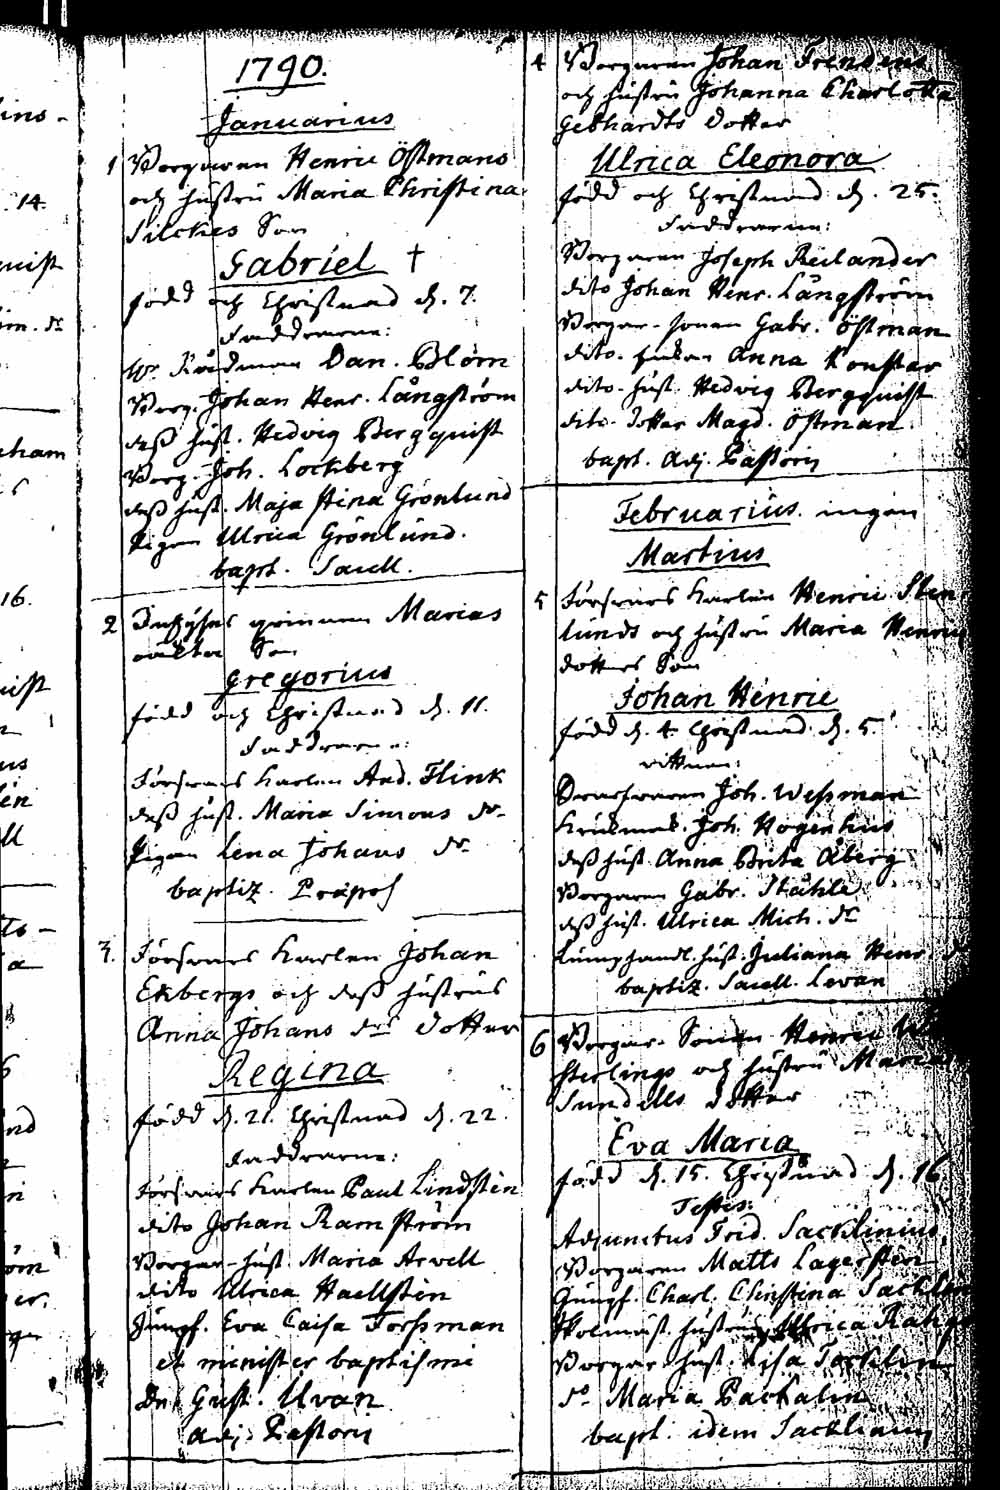 1790.
Januarius
1 Borgaren Henric Östmans
och hustru Maria Christina
Silckes Son
Gabriel †
född och Christnad d. 7.
Faddrarne:
Hr Rådman Dan. Blom
Borg. Johan Henr. Långström
dess hust. Hedvig Bergquist
Borg. Joh. Lockberg
dess hust. Maja Stina Grönlund
Pigan Ulrica Grönlund.
bapt. Sacell.
2 Marias
oäkta Son
Gregorius
född och Christnad d. 11.
Faddrarne:
Försvars Karlen And. Flink
dess hust. Maria Simons dr
Pigan Lena Johans dr
baptiz. Præpos
3. Försvars Karlen Johan
Ekbergs och dess hustrus
Anna Johans drs dotter
Regina
född d. 21. Christnad d. 22.
Faddrarne:
Försvars Karlen Paul Lindsten
dito Johan Ramström
Borgar-hust. Maria Arvell
dito Ulrica Haellsten
Jungf. Eva Caisa Forssman
et minister baptismi
Dn Gust. Uvan
Adj. Pastoris
4 Borgaren Johan
och hustru Johanna Charlotta
Gebhardts dotter
Ulrica Eleonora
född och Christnad d. 25.
Faddrarne:
Borgaren Joseph Reilander
dito Johan Henr. Långström
Borgar-sonen Gabr. Östman
dito. Anna
dito-hust. Hedvig Bergquist
dito-dotter Magd. Östman.
bapt. Adj. Pastoris
Februarius. ingen
Martius
5 Försvars Karlen Henric Sten
lunds och hustru Maria Henrics
dotters Son
Johan Henric
född d. 4 Christnad d. 5.
vittnen:
Joh. Wessman
Krukmak. Joh. Hogenhus
dess hust Anna Brita Åberg
Borgaren Gabr. Ståhle
dess hust. Ulrica Mich. dr
hust. Juliana Henr. d
baptiz. Sacell. Levan
6 Borgar-Sonen Henric
sterlings och hustru Maria
Sundells dotter
Eva Maria
född d. 15. Christnad d. 16
Testes:
Adjunctus Frid. Sacklinius,
Borgaren Matts Lagersten
Jungf. Charl. Christina Sacklin
Skolmäst. hustru Ulrica
Borgar-hust. Lisa
do Maria Packalen
bapt. idem Sacklinius